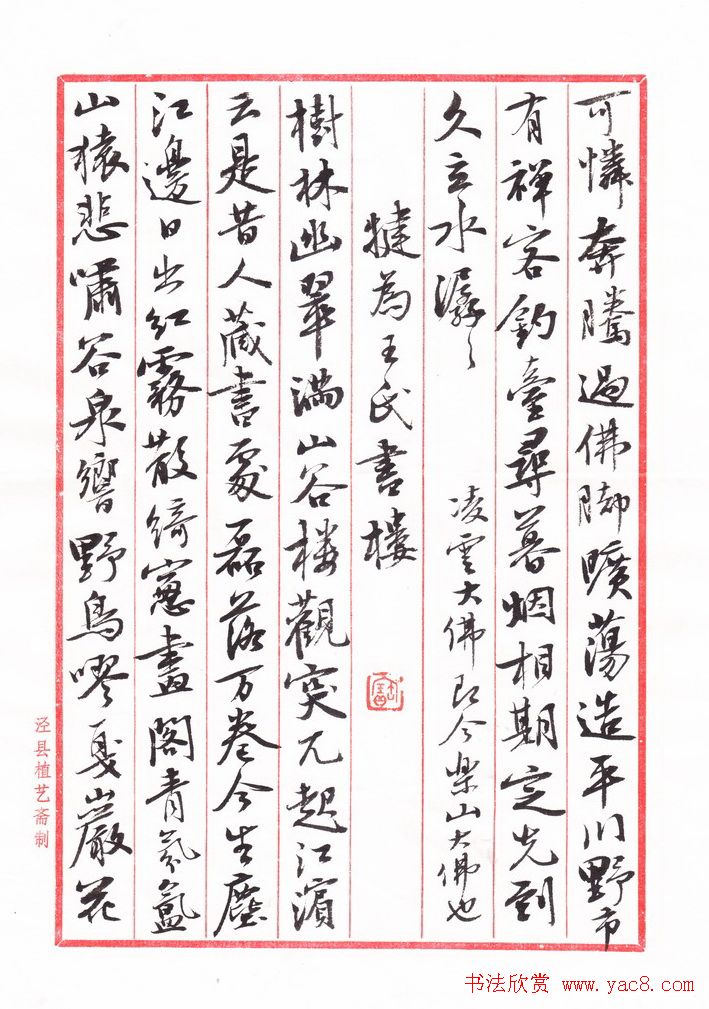 可憐奔騰過佛脚曠蕩造平川野市
有禪客釣臺尋暮烟相期定先到
久立水潺〻
凌雲大佛即今樂山大佛也
犍為王氏書樓
樹林幽翠滿山谷楼觀突兀起江濱
云是昔人藏書處磊落万卷今生塵
江邊日出紅霧散綺窗畫閣青氛氳
山猿悲嘯谷泉響野鳥嘐戛巖花
泾县植艺斋制
书法欣赏 www.yac8.com